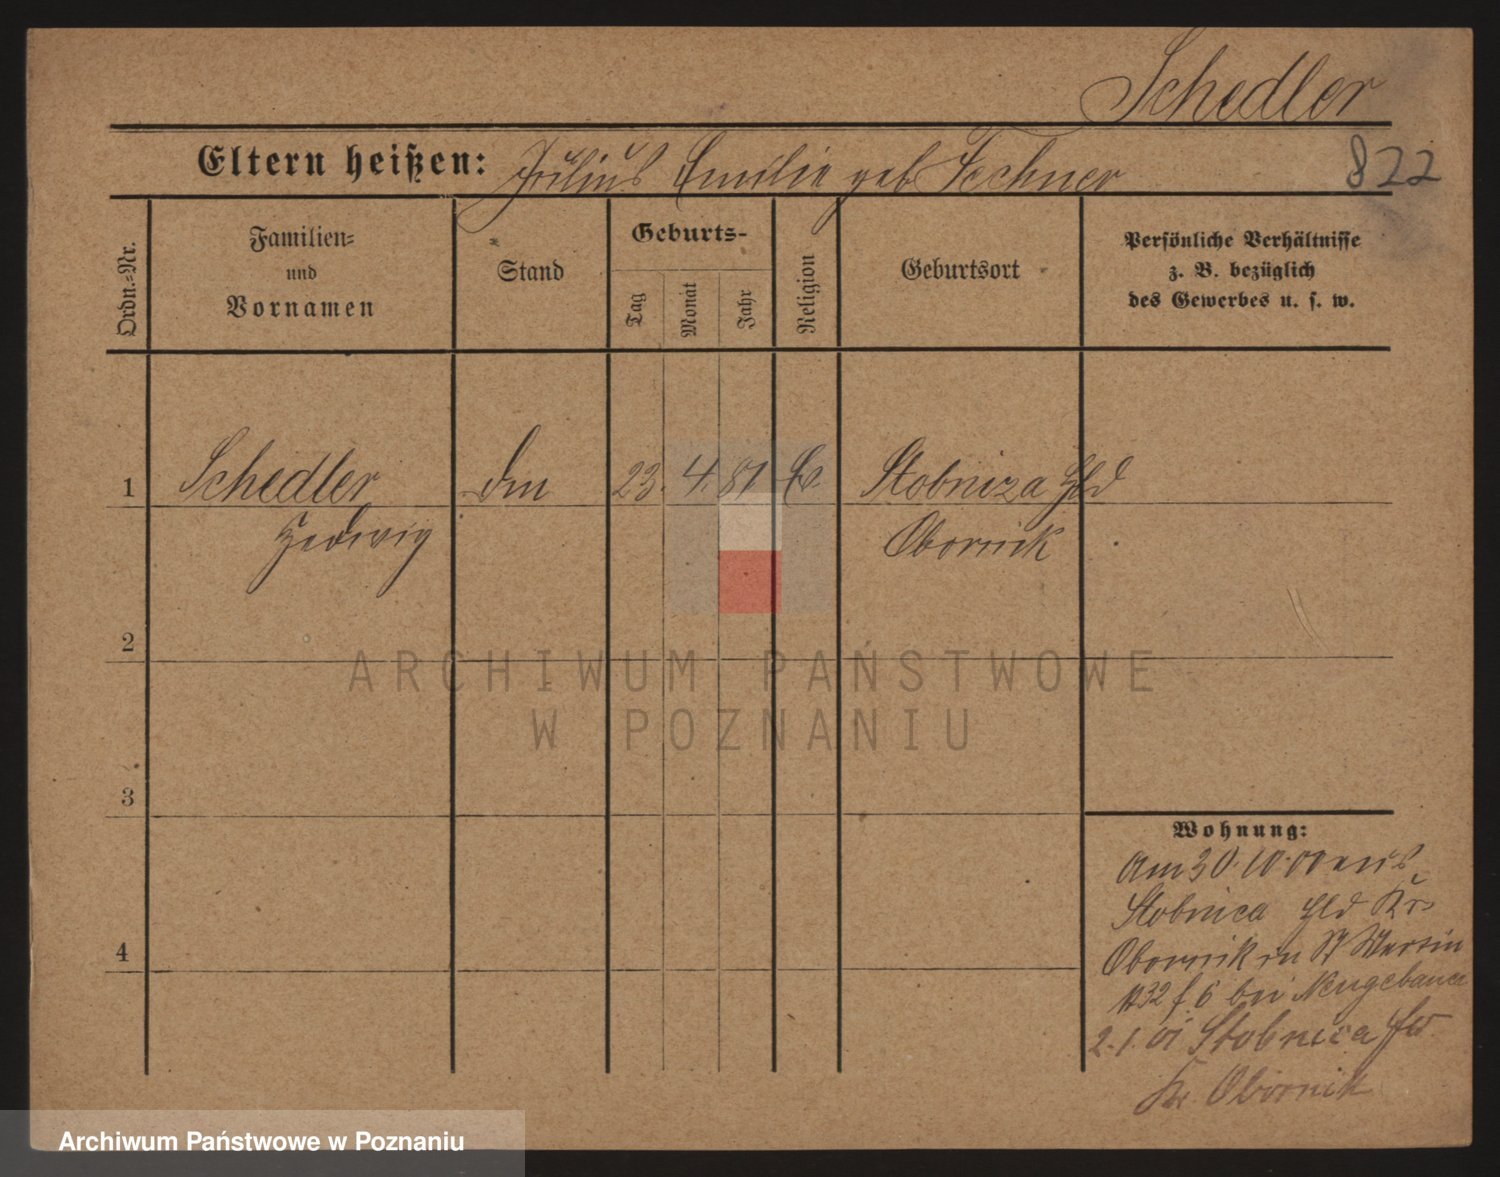 Schedler
Eltern heißen: Julius Emilie geb Fechner
822
Ordn.-Nr.
Familien-
und
Vornamen
Stand
Geburts-
Tag
Monat
Jahr
Religion
Geburtsort
Persönliche Verhältnisse
z. B. bezüglich
des Gewerbes u. s. w.
1 Schedler 23. 4. 81 Ev. Stobniza Hld
Hedwig Obornik
2
ARCHIWUM PAŃSTWOWE
W POZNANIU
3
Wohnung:
Am 30.10.00 aus
Stobnica Hld Krs
4
Obornik in St Martin
32 6 bei Neugebauer
2.1.01 Stobnica Hld
Kr. Obornik
Archiwum Państwowe w Poznaniu